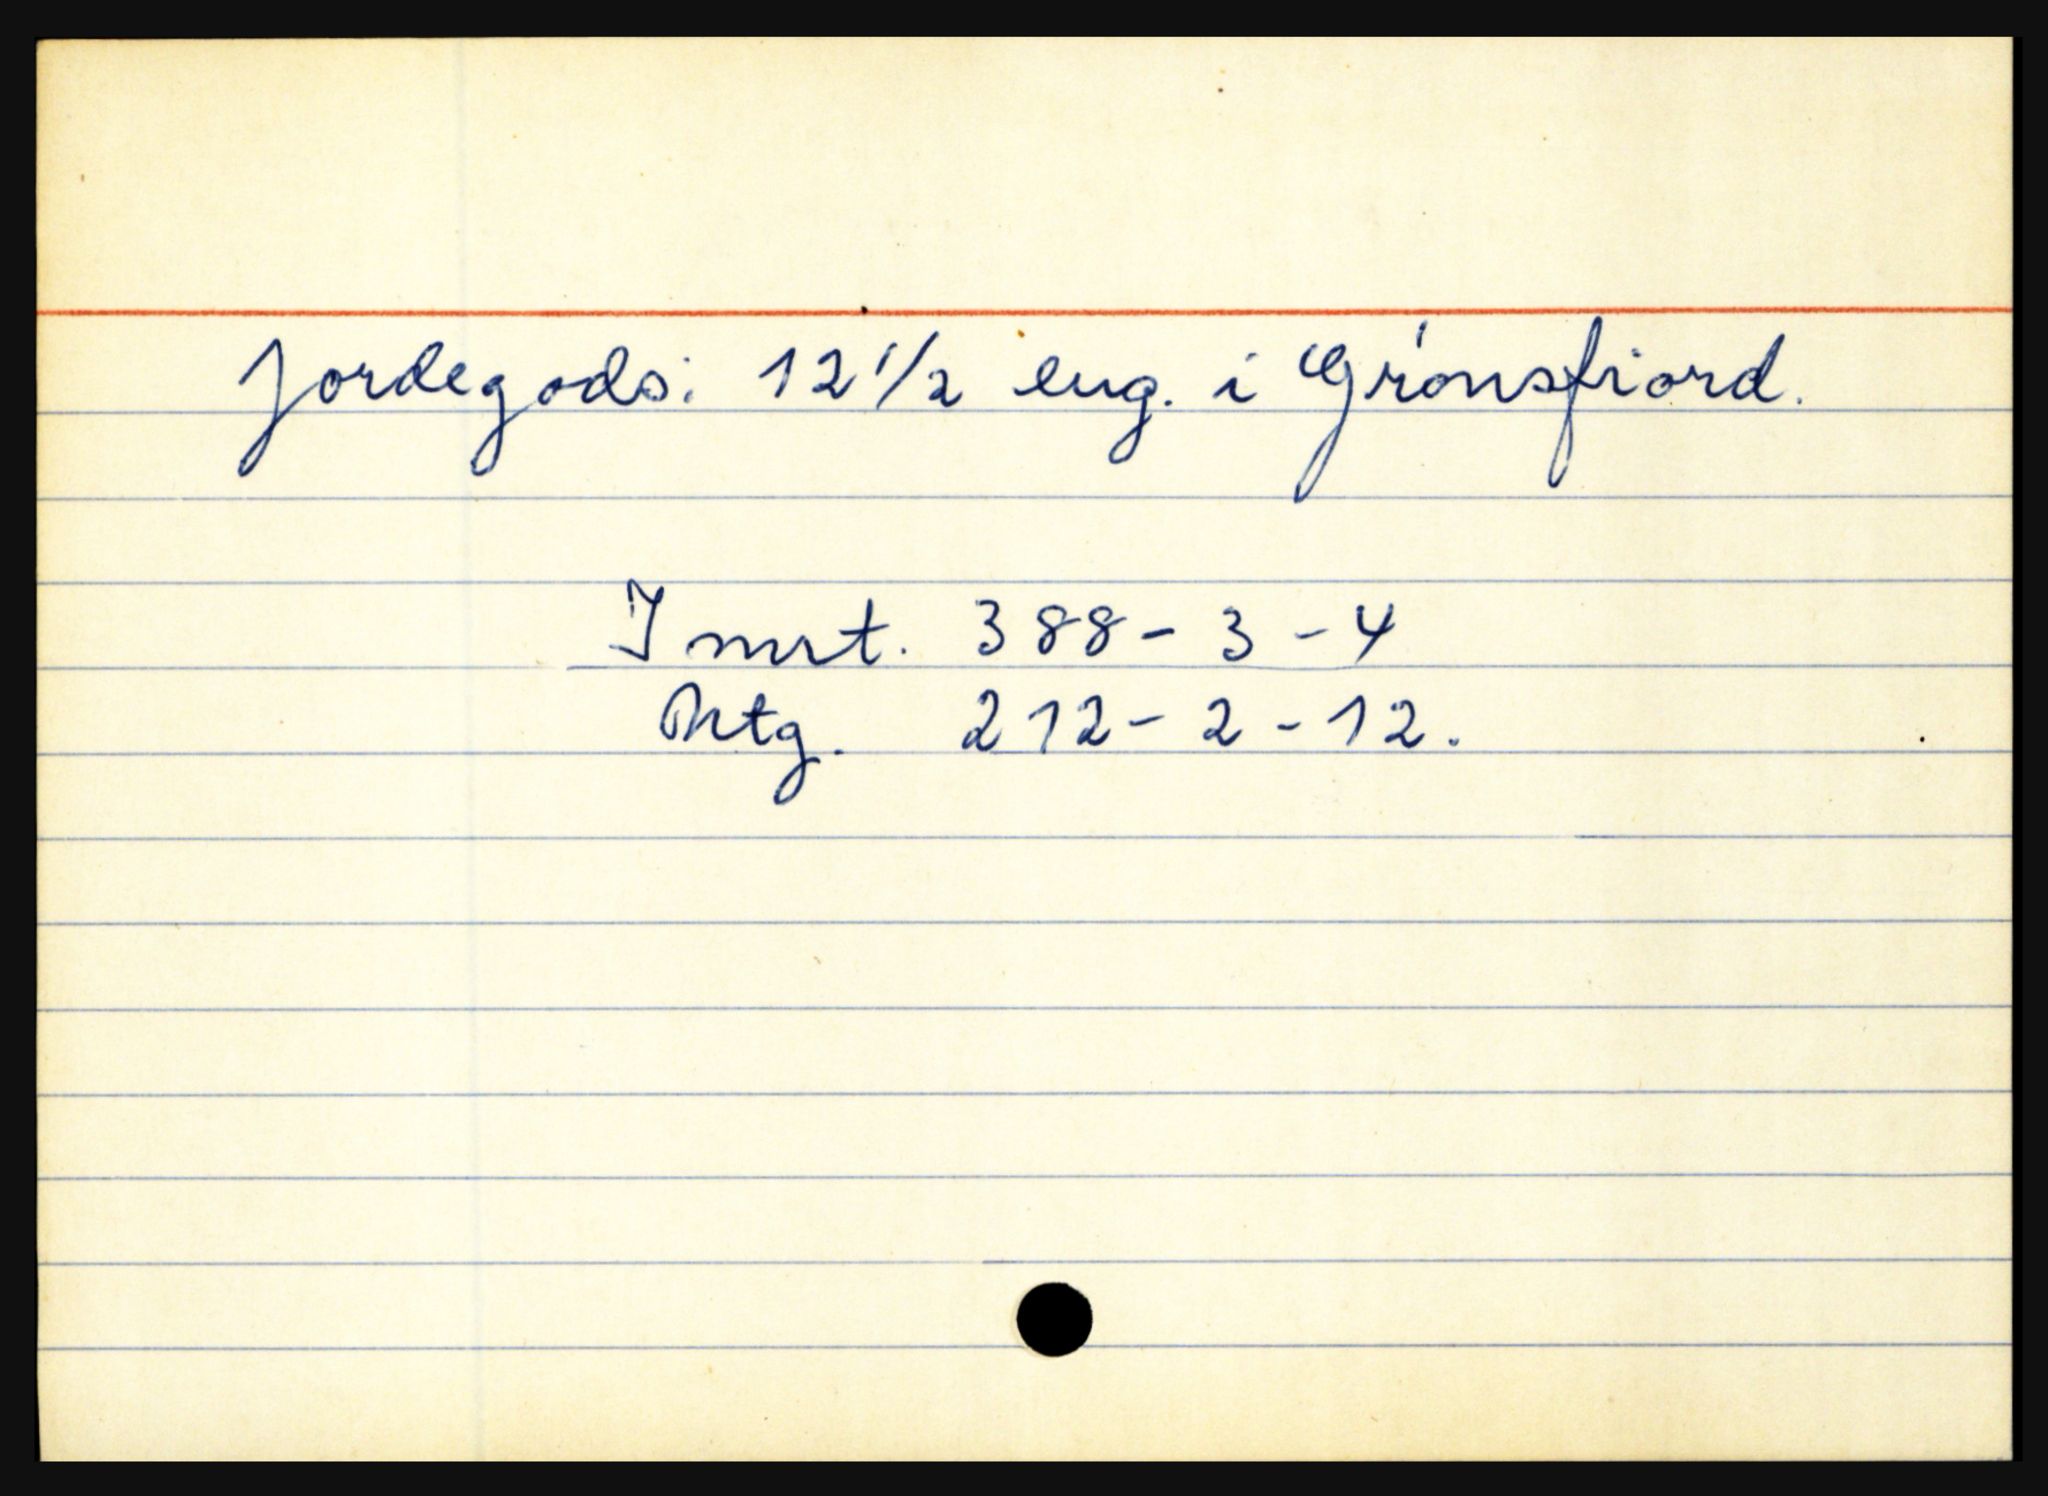 Jordegods: 12 1/2 eng. i Grónsfiord.
Inrt. 388 - 3 - 4
Ntg. 212 - 2 - 12.